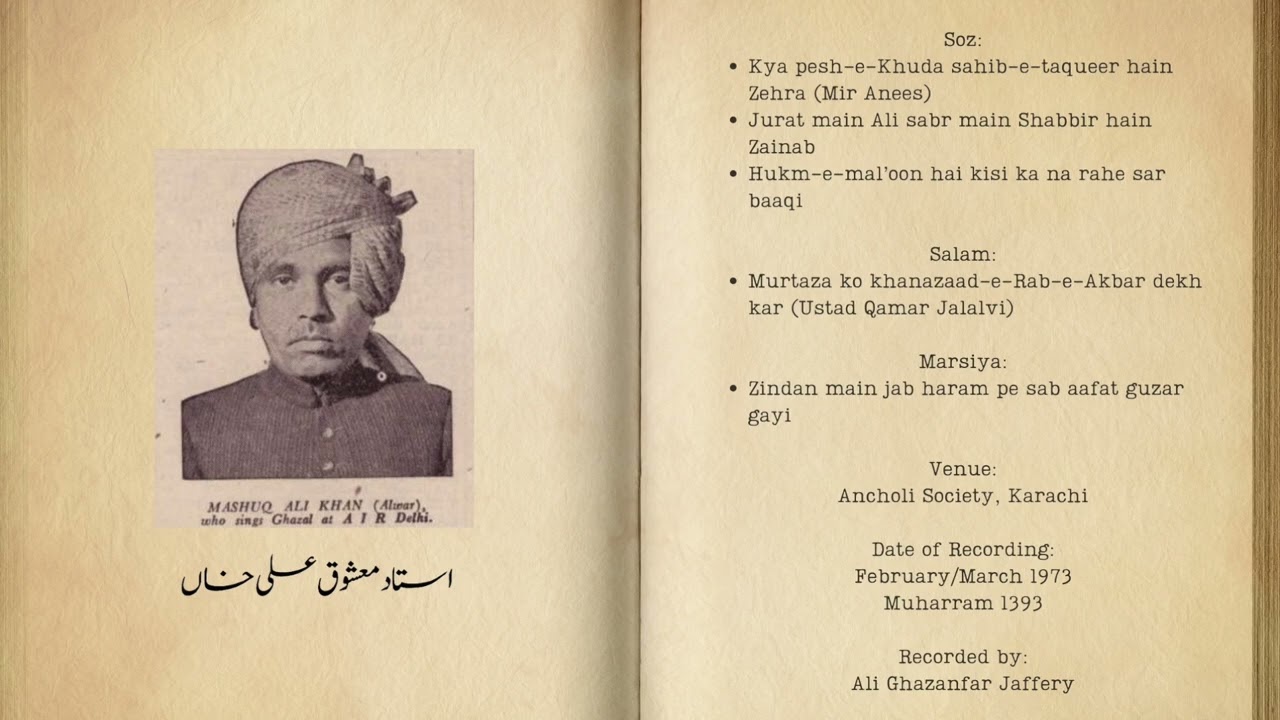 MASHUQ ALI KHAN (Alwar),
who sings Ghazal at A I R Delhi.
استاد معشوق علی خاں
Soz:
• Kya pesh-e-Khuda sahib-e-taqueer hain
Zehra (Mir Anees)
• Jurat main Ali sabr main Shabbir hain
Zainab
• Hukm-e-mal'oon hai kisi ka na rahe sar
baaqi
Salam:
• Murtaza ko khanazaad-e-Rab-e-Akbar dekh
kar (Ustad Qamar Jalalvi)
Marsiya:
• Zindan main jab haram pe sab aafat guzar
gayi
Venue:
Ancholi Society, Karachi
Date of Recording:
February/March 1973
Muharram 1393
Recorded by:
Ali Ghazanfar Jaffery